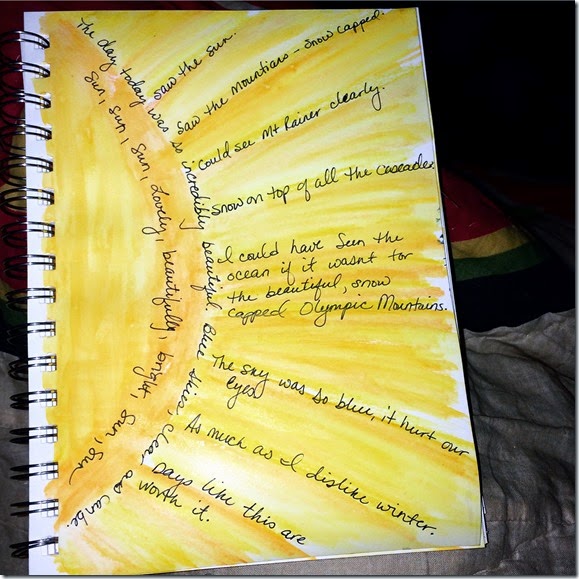 The day today was so incredibly beautiful. Blue skies, clear as can be.
Sun, sun, sun, lovely, beautifully, bright, sun, sun
Saw the sun.
Saw the mountians - snow capped.
Could see Mt Rainer clearly.
Snow on top of all the cascades
I could have seen the
ocean if it wasnt for
the beautiful, snow
capped Olympic Mountains.
The sky was so blue, it hurt our
eyes
As much as I dislike winter.
Days like this are
worth it.